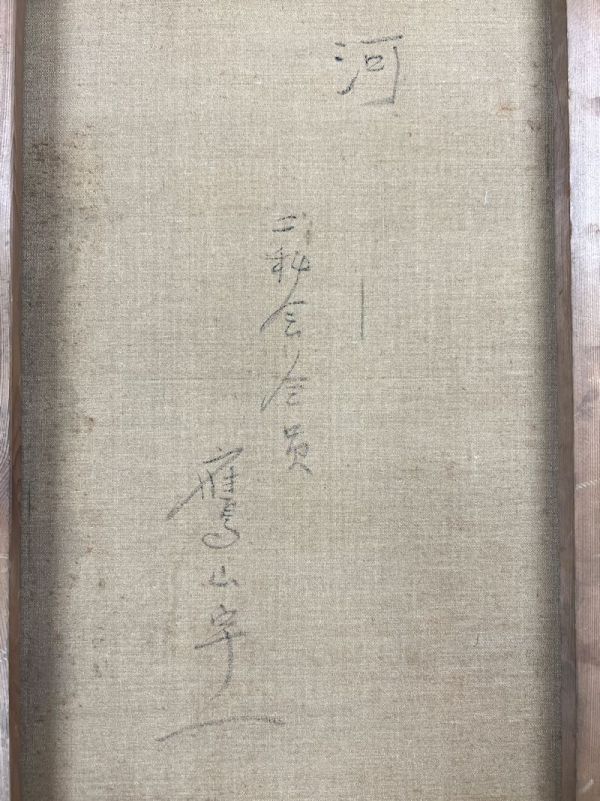 河
二科会会員
鷹山宇一